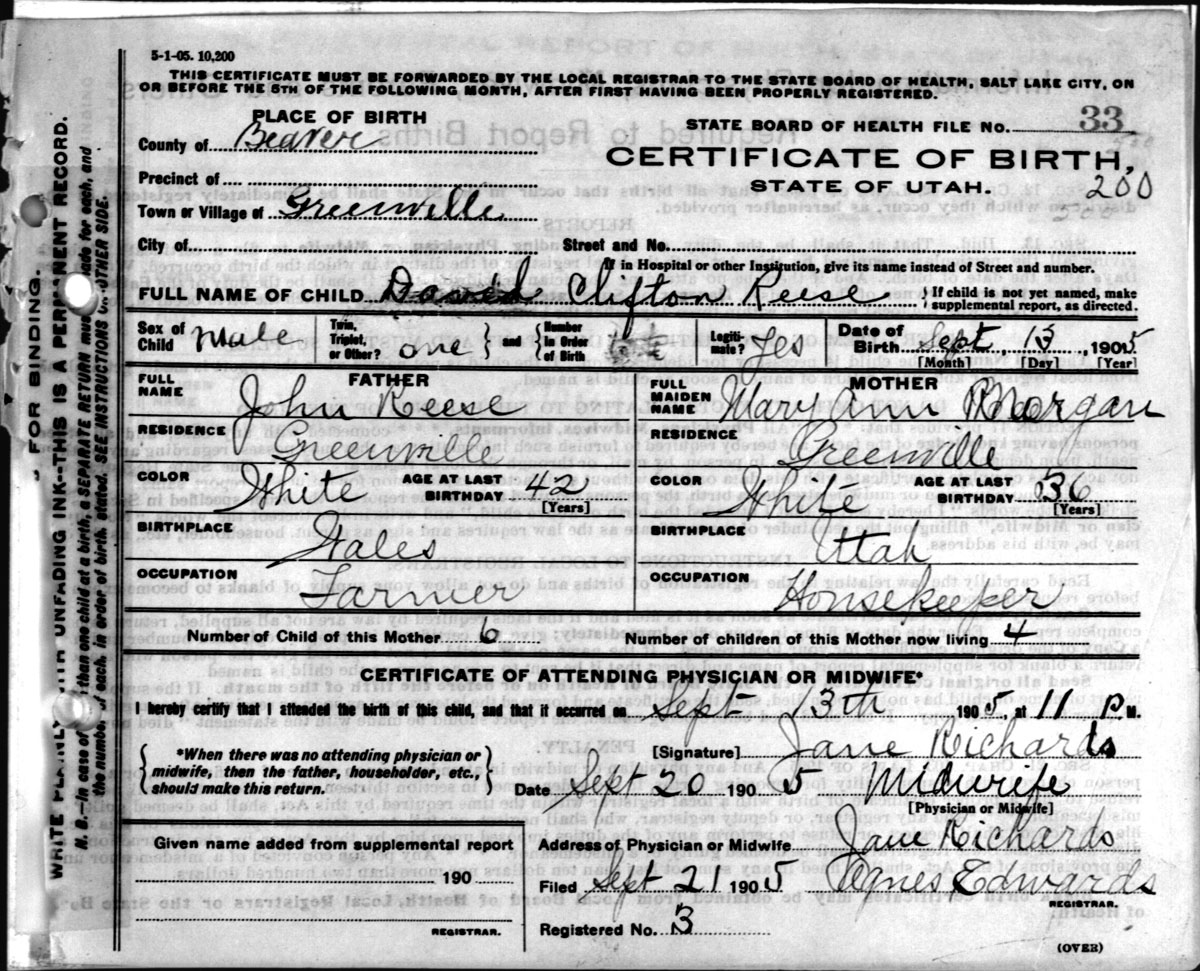 5-1-05. 10,200
THIS CERTIFICATE MUST BE FORWARDED BY THE LOCAL REGISTRAR TO THE STATE BOARD OF HEALTH, SALT LAKE CITY, ON
OR BEFORE THE 5TH OF THE FOLLOWING MONTH, AFTER FIRST HAVING BEEN PROPERLY REGISTERED.
PLACE OF BIRTH
STATE BOARD OF HEALTH FILE NO. 33
County of Beaver
CERTIFICATE OF BIRTH,
Precinct of
STATE OF UTAH. 200
Town or Village of Greenville
City of Street and No.
If in Hospital or other Institution, give its name instead of Street and number.
FULL NAME OF CHILD David Clifton Reese { If child is not yet named, make supplemental report, as directed.
Sex of Child Male Twin, Triplet, or Other? one } and { Number in Order of Birth Legitimate? Yes Date of Birth Sept, 13, 1905
[Month] [Day] [Year]
FULL NAME FATHER John Reese
FULL MAIDEN NAME MOTHER Mary Ann Morgan
RESIDENCE Greenville
RESIDENCE Greenville
COLOR White AGE AT LAST BIRTHDAY 42 [Years]
COLOR White AGE AT LAST BIRTHDAY 36 [Years]
BIRTHPLACE Wales
BIRTHPLACE Uttah
OCCUPATION Farmer
OCCUPATION Housekeeper
Number of Child of this Mother 6 Number of children of this Mother now living 4
CERTIFICATE OF ATTENDING PHYSICIAN OR MIDWIFE*
I hereby certify that I attended the birth of this child, and that it occurred on Sept 13th 1905, at 11 P M.
{ *When there was no attending physician or midwife, then the father, householder, etc., should make this return. }
[Signature] Jane Richards
Date Sept 20 1905 Midwife
[Physician or Midwife]
Given name added from supplemental report
Address of Physician or Midwife Jane Richards
190
Filed Sept 21 1905 Agnes Edwards
REGISTRAR.
REGISTRAR.
Registered No. 3
(OVER)
FOR BINDING.
WRITE PLAINLY WITH UNFADING INK--THIS IS A PERMANENT RECORD.
N.B.--In case of more than one child at a birth, a SEPARATE RETURN must be made for each, and
the number of each, in order of birth stated. SEE INSTRUCTIONS ON OTHER SIDE.